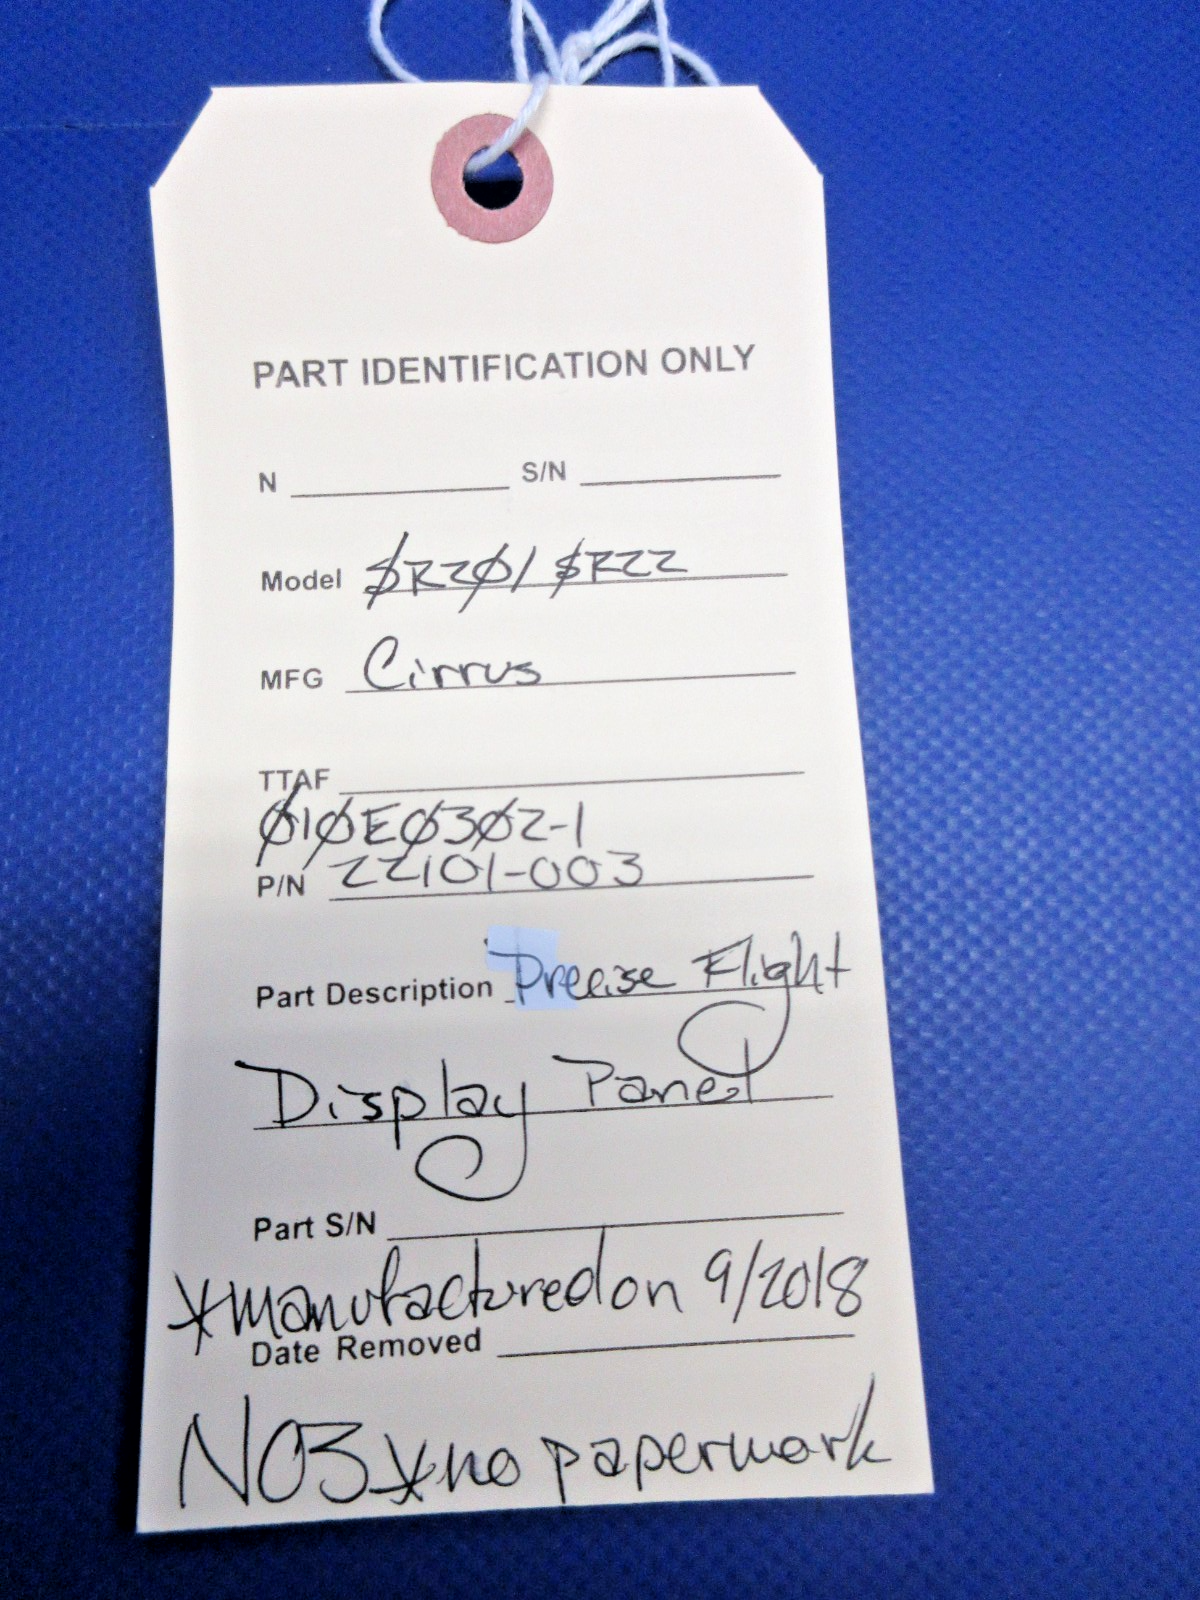 PART IDENTIFICATION ONLY
N S/N
Model SR20/SR22
MFG Cirrus
TTAF
010E0302-1
P/N 22101-003
Part Description Precise Flight
Display Panel
Part S/N
*manufactured on 9/2018
Date Removed
NOS *no paperwork